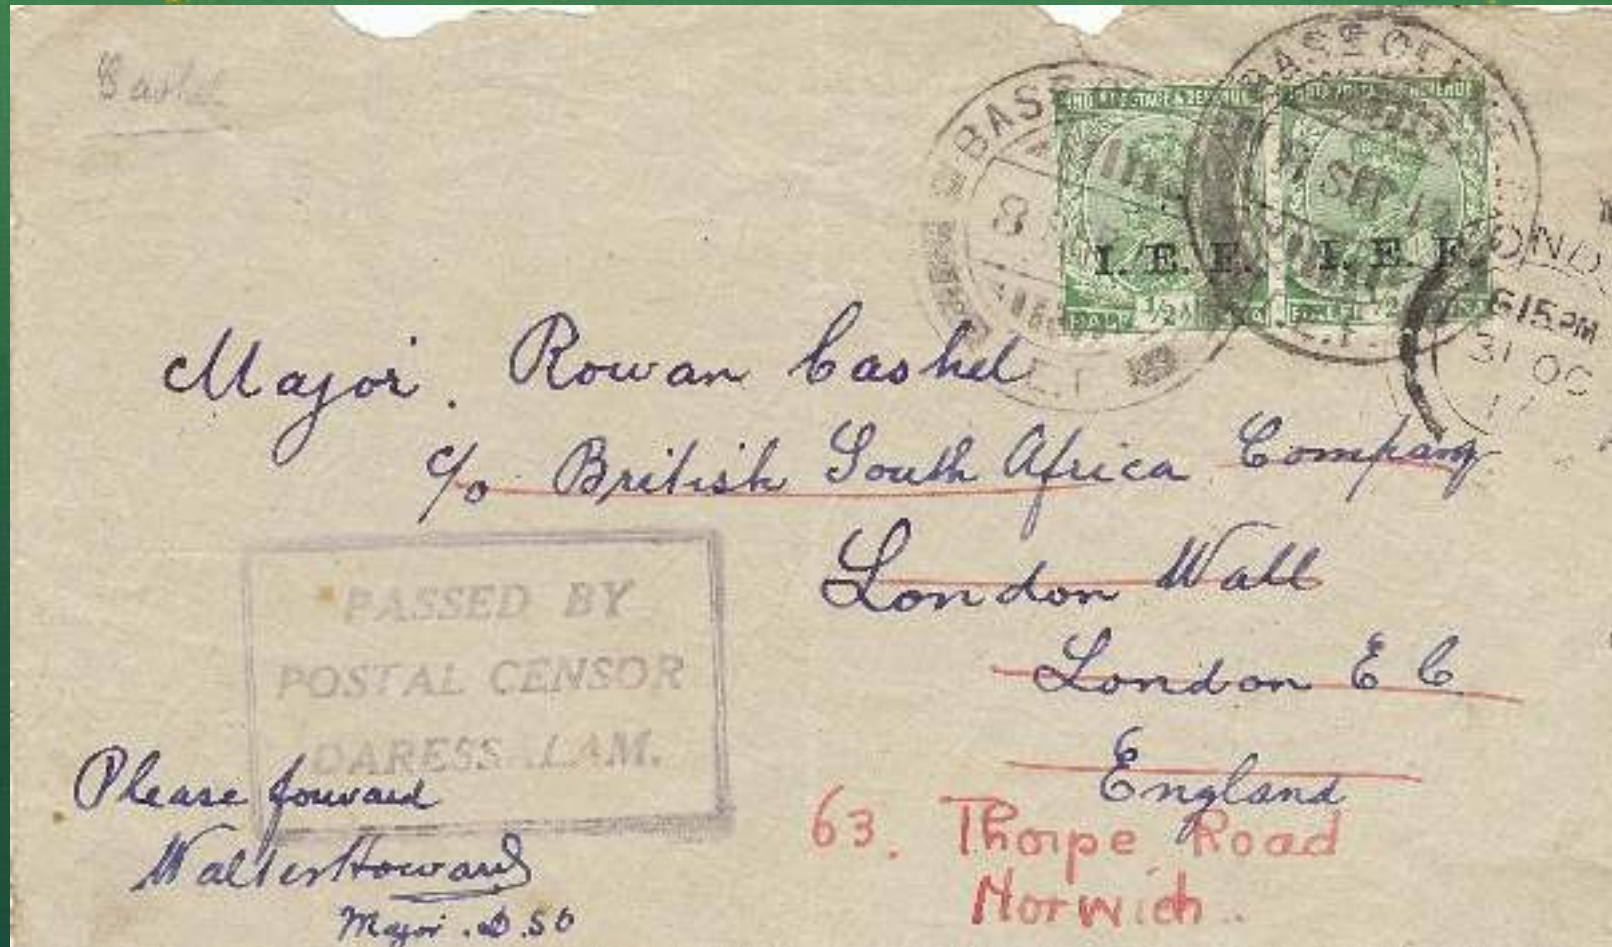 Cashel
BASE OFFICE
INDIA POSTAGE & REVENUE
INDIA POSTAGE & REVENUE
SEP 17
I. E. F.
I. E. F.
HALF ½ A
HALF ½
6 15 PM
31 OC
17
Major. Rowan Cashel
c/o British South Africa Company
London Wall
London E C
England
PASSED BY
POSTAL CENSOR
DARESS LAM.
Please forward
Walter Howard
Major. D.SO
63. Thorpe Road
Norwich.